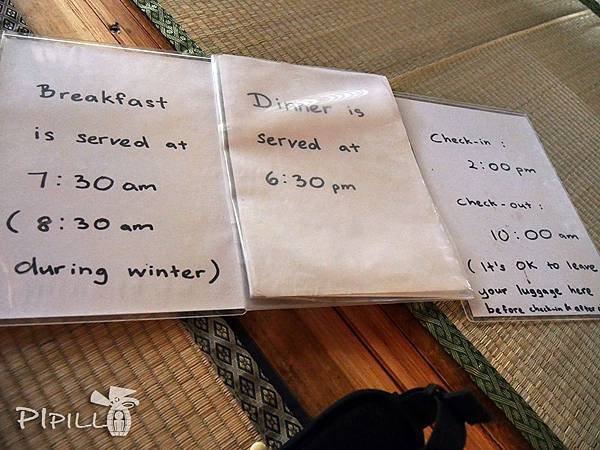 Breakfast
is served at
7:30 am
(8:30 am
during winter)
Dinner is
served at
6:30 pm
Check-in :
2:00 pm
check-out :
10:00 am
(It's OK to leave
your luggage here
before check-in & after
PIPILL